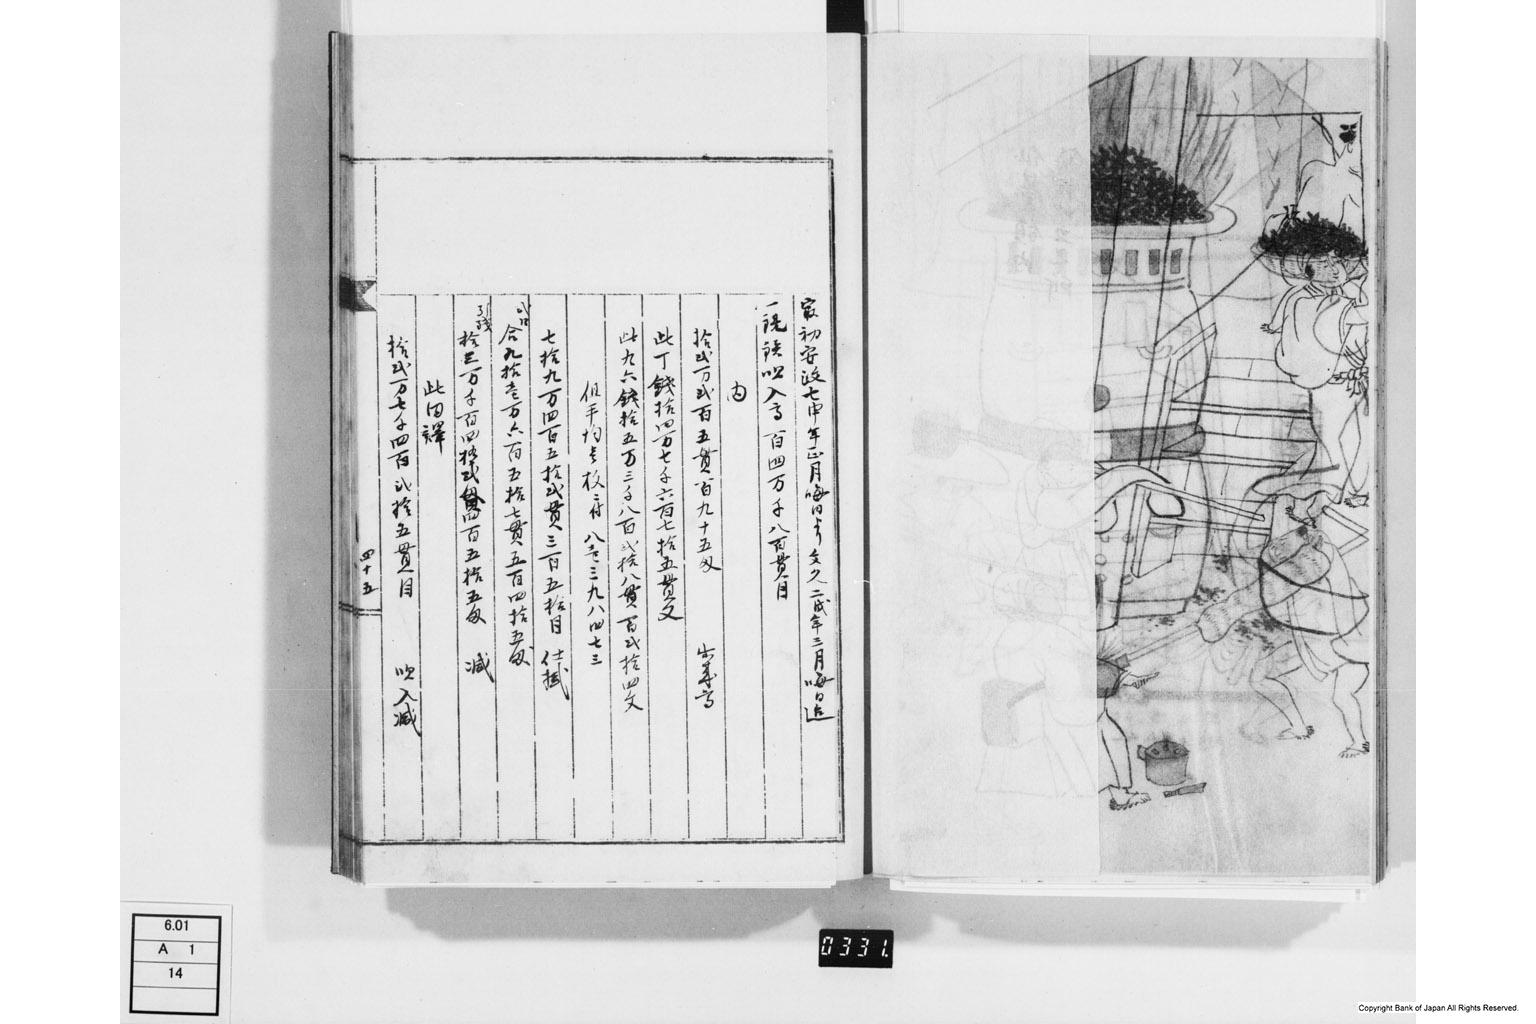 最初安政七申年正月晦日ゟ文久二戌年三月晦日迄
一銑鉄吹入高 百四万千八百貫目
内
拾弐万弐百五貫百九十五匁 出来高
此丁銭拾四万七千六百七拾五貫文
此九六銭拾五万三千八百弐拾八貫百弐拾四文
但平均壱枚ニ付 八壱三九八四七三
七拾九万四百五拾弐貫三百五拾目 仕拭
弐口
合九拾壱万六百五拾七貫五百四拾五匁
引残
拾三万千百四拾弐貫四百五拾五匁 減
此内譯
拾弐万七千四百弐拾五貫目 吹入減
四十五
6.01
A 1
14
0331.
Copyright Bank of Japan All Rights Reserved.